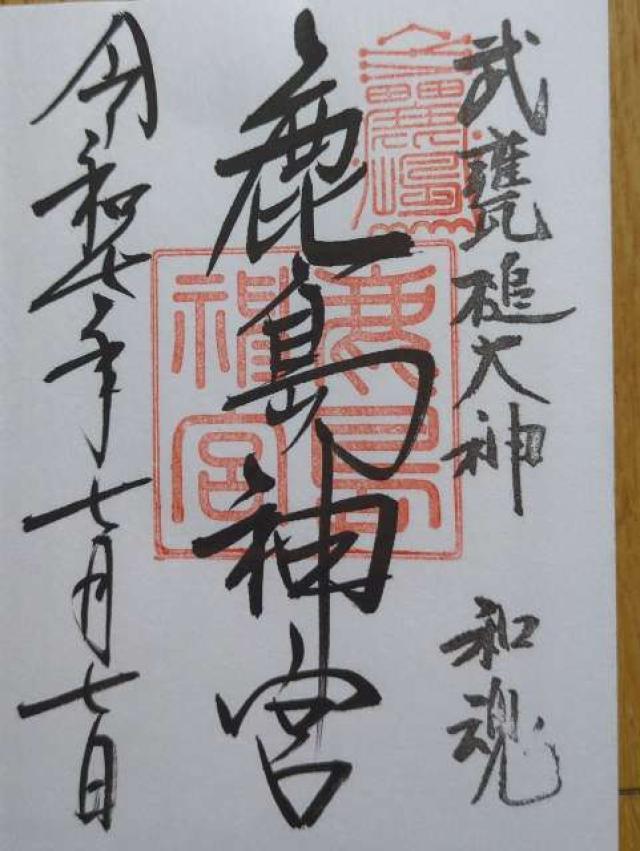 武甕槌大神 和魂
鹿嶋
鹿島神宮
鹿島神宮
令和七年七月七日